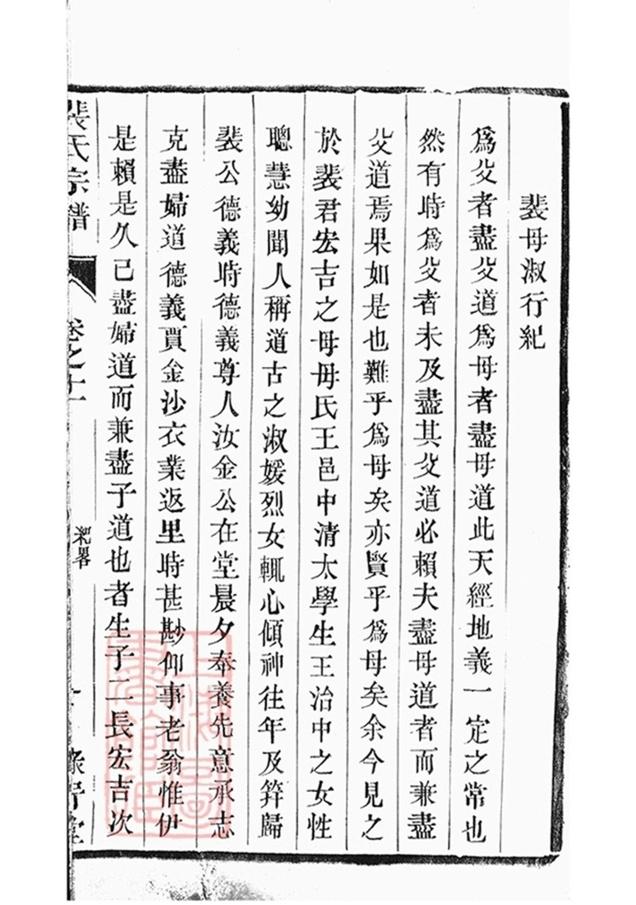 裴母淑行紀
爲父者盡父道爲母者盡母道此天經地義一定之常也
然有時爲父者未及盡其父道必賴夫盡母道者而兼盡
父道焉果如是也難乎爲母矣亦賢乎爲母矣余今見之
於裴君宏吉之母毋氏王邑中清太學生王治中之女性
聰慧幼聞人稱道古之淑媛烈女輒心傾神往年及筓歸
裴公德義時德義尊人汝金公在堂晨夕奉養先意承志
克盡婦道德義賈金沙衣業返里時甚尠仰事老翁惟伊
是賴是久已盡婦道而兼盡子道也者生子二長宏吉次
裴氏宗譜
卷之十一
紀畧